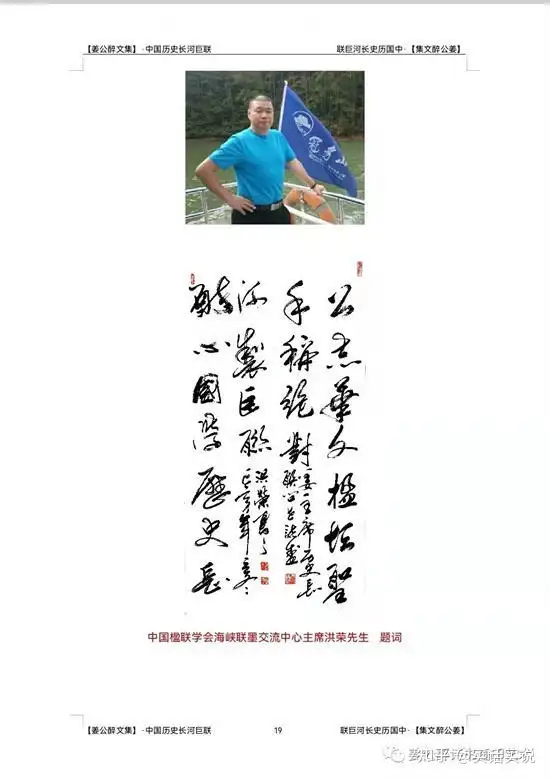 【姜公醉文集】-中国历史长河巨联
联巨河长史历国中-【集文醉公姜】
冠豸山
華文楹坛聖
手稱絕對
醉心國学歷史長
河製巨聯
洪榮書
中国楹联学会海峡联墨交流中心主席洪荣先生 题词
【姜公醉文集】-中国历史长河巨联
19
联巨河长史历国中-【集文醉公姜】